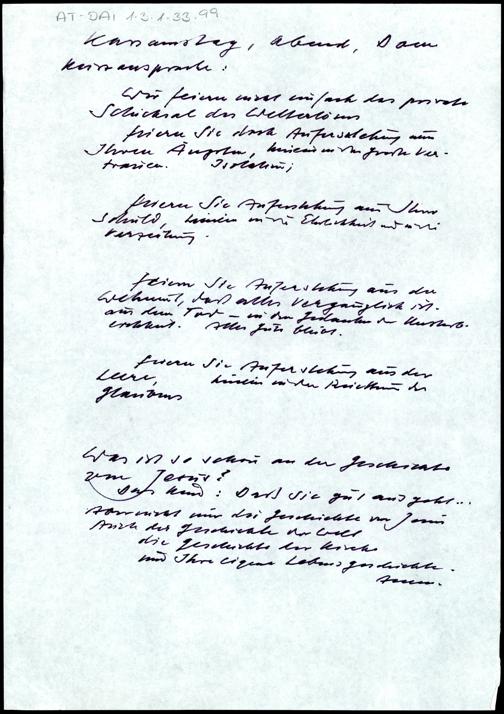 AT-DAI 1-3-1-33.99
Karsamstag, Abend, Dom
Kurzansprache:
Wir feiern nicht einfach das private
Schicksal des Welterlösers
feiern Sie doch Auferstehung aus
Ihren Ängsten, hinein in das große Ver-
trauen. Isolation;
feiern Sie Auferstehung aus Ihrer
Schuld, hinein in die Ehrlichkeit und in die
Verzeihung.
feiern Sie Auferstehung aus der
Wehmut, daß alles vergänglich ist.
aus dem Tod – in den Gedanken der Unsterb-
lichkeit. Alles Gute bleibt.
feiern Sie Auferstehung aus der
Leere, hinein in den Reichtum des
Glaubens
Was ist so schön an der Geschichte
von Jesus?
Das Kind: Daß sie gut ausgeht...
nicht nur die Geschichte von Jesus
Auch die Geschichte der Welt
die Geschichte der Kirche
und Ihre eigene Lebensgeschichte.
Amen.